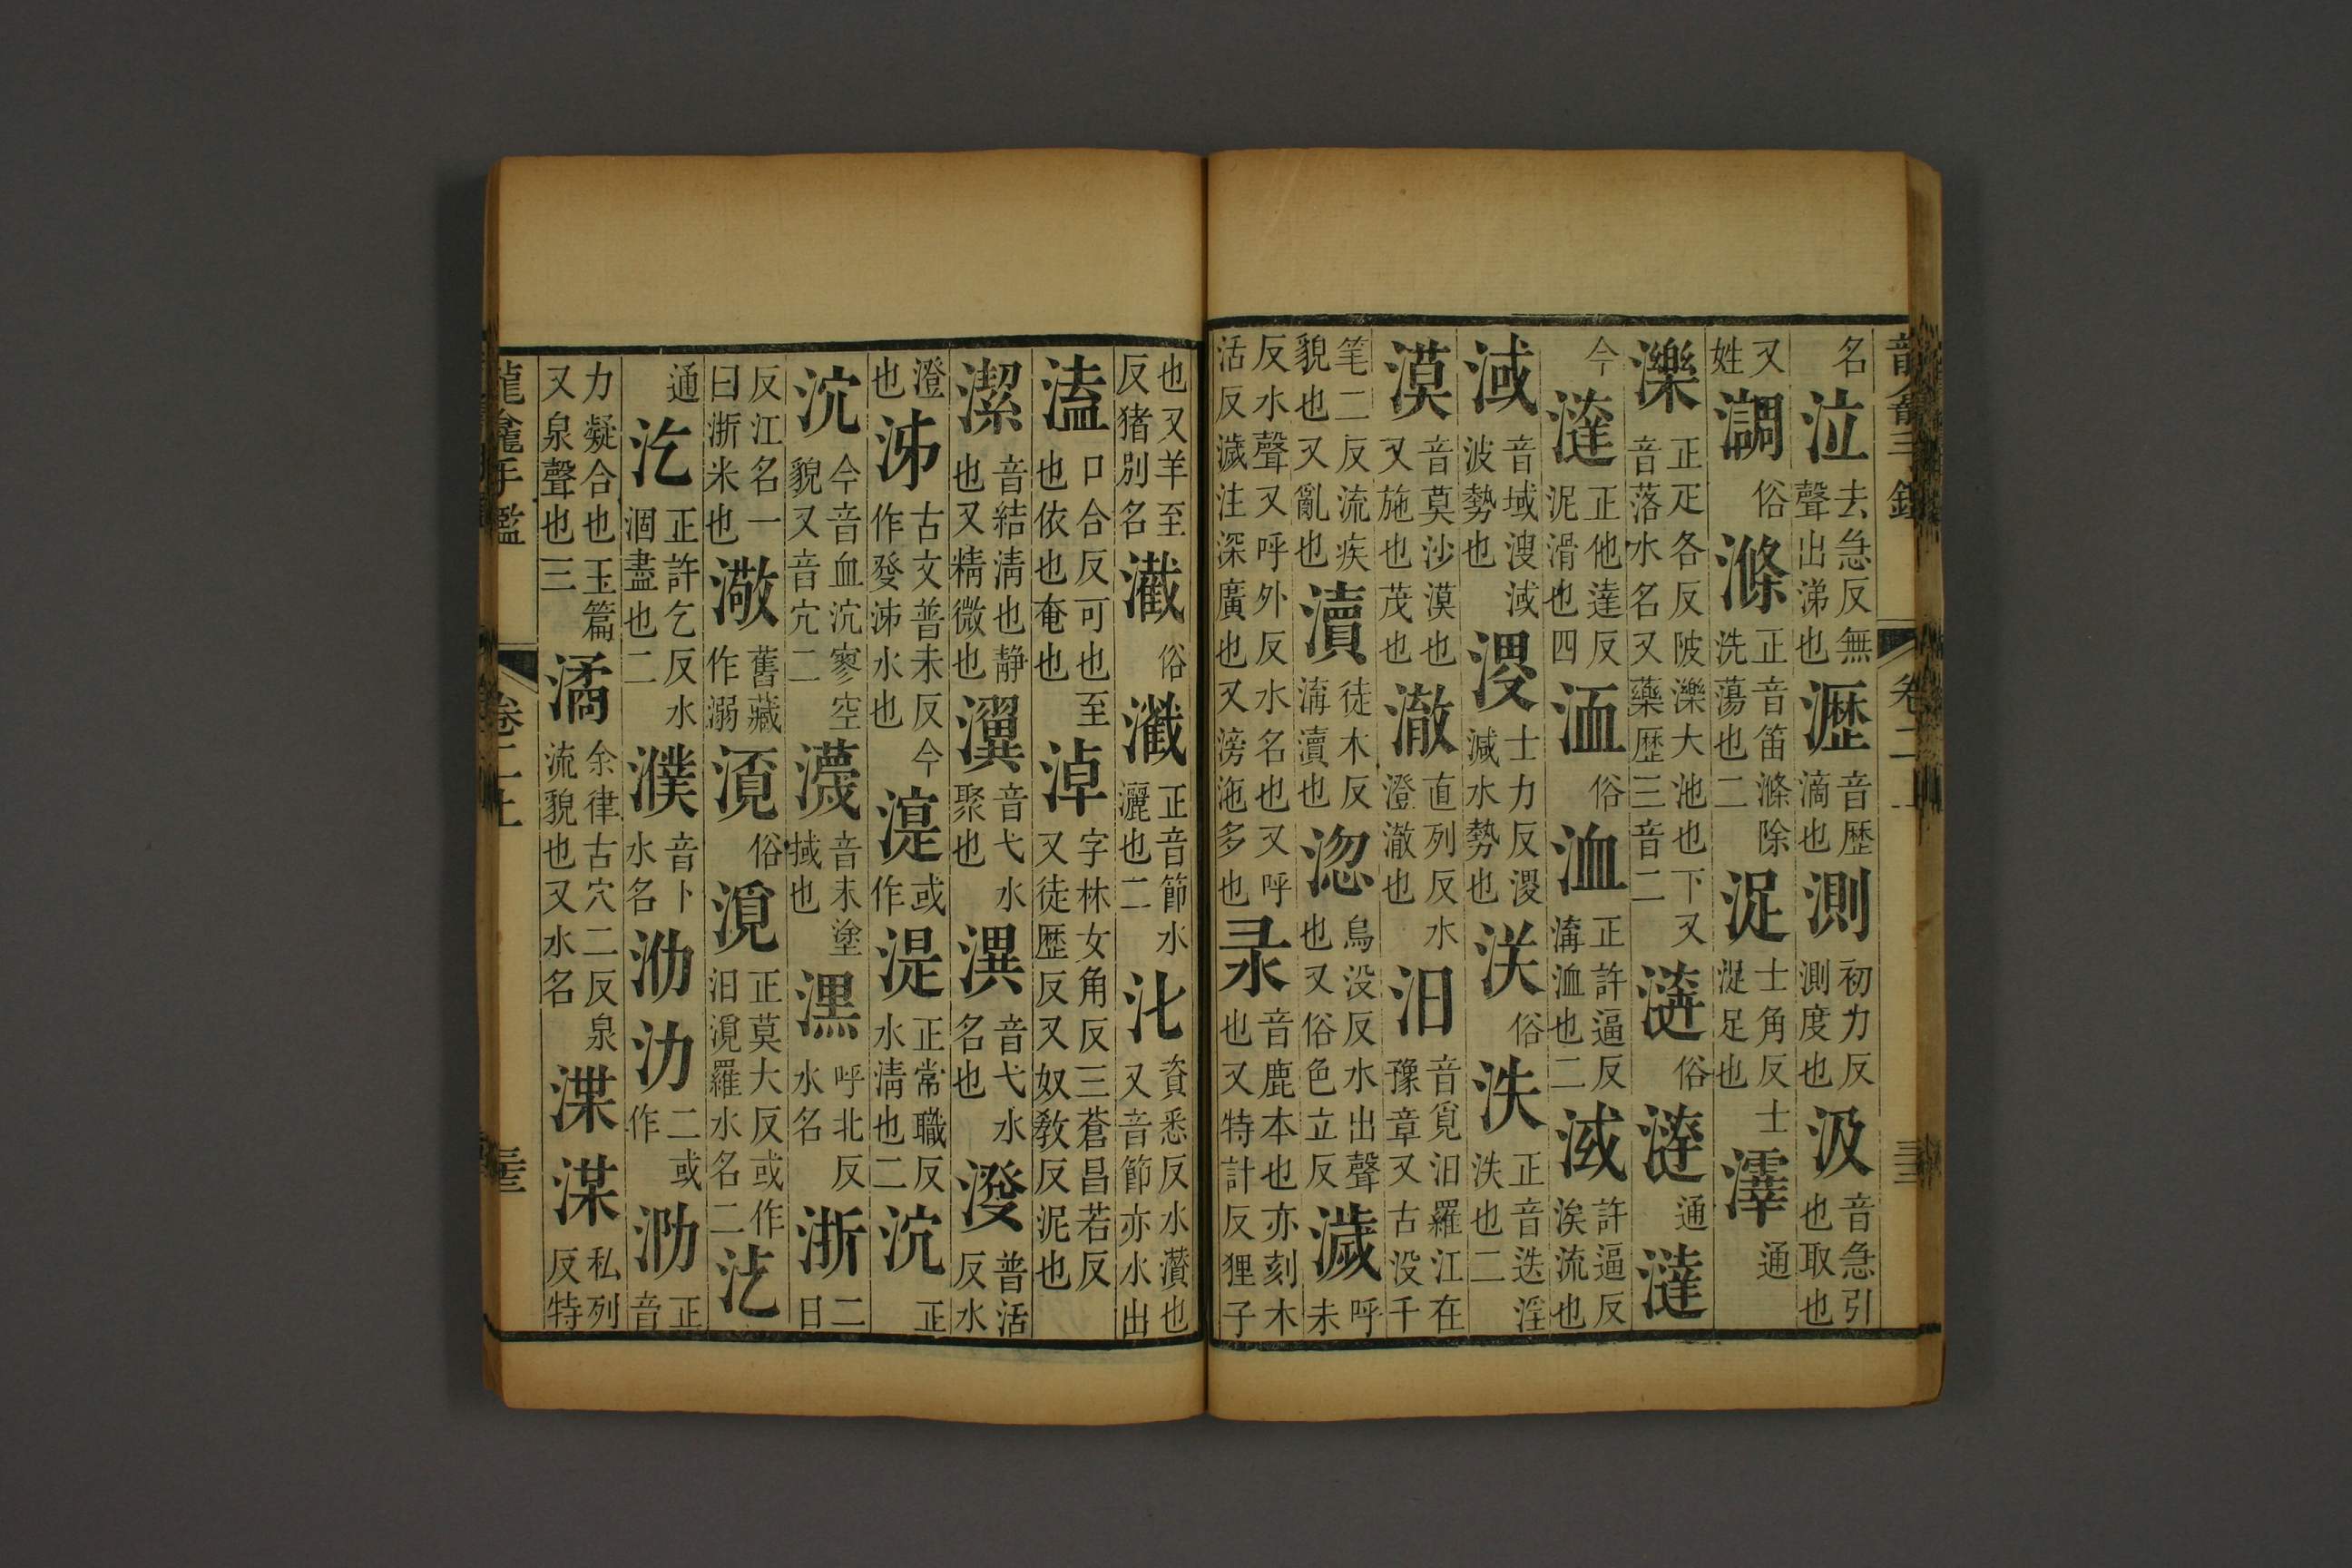 名泣去急反無聲出涕也瀝音歷滴也測初力反測度也汲音急引也取也
又姓㵊俗滌正音笛滌除洗蕩也二浞士角反士浞足也澤通
濼正疋各反陂濼大池也下又音落水名又藥歷三音二
俗
通
今澾正他達反泥滑也四洫俗洫正許逼反溝洫也二淢許逼反涘流也
淢音域溲淢波勢也溭士力反溭減水勢也泆俗泆正音迭淫泆也二
漠音莫沙漠也又施也茂也澈直列反水澄澈也汨音覓汨羅江在豫章又古没千
笔二反流疾貌也又亂也瀆徒木反溝瀆也淴烏没反水出聲也又俗色立反濊呼未
反水聲又呼外反水名也又呼活反濊注深廣也又滂沲多也彔音鹿本也亦刻木也又特計反狸子
也又羊至反猪別名㶡俗瀐正音節水灑也二沘資悉反水灒也又音節亦水出
溘口合反可也至也依也奄也淖字林女角反三蒼昌若反又徒歷反又奴敎反泥也
潔音結清也静也又精微也瀷音弋水聚也潩音弋水名也潑普活反水
澄也沛古文普未反今作發沛水也湜或作湜正常職反水清也二泬正
泬今音血泬寥空貌又音穴二瀎音末塗㧒也潶呼北反水名浙二日
反江名一曰浙米也㵸舊藏作溺湏俗漞正莫大反或作汨漞羅水名二
通汔正許乞反水涸盡也二濮音卜水名泐二或作泐正音
力凝合也玉篇又泉聲也三潏余律古穴二反泉流貌也又水名渫私列反特
龍龕手鑑
卷二
卷二上